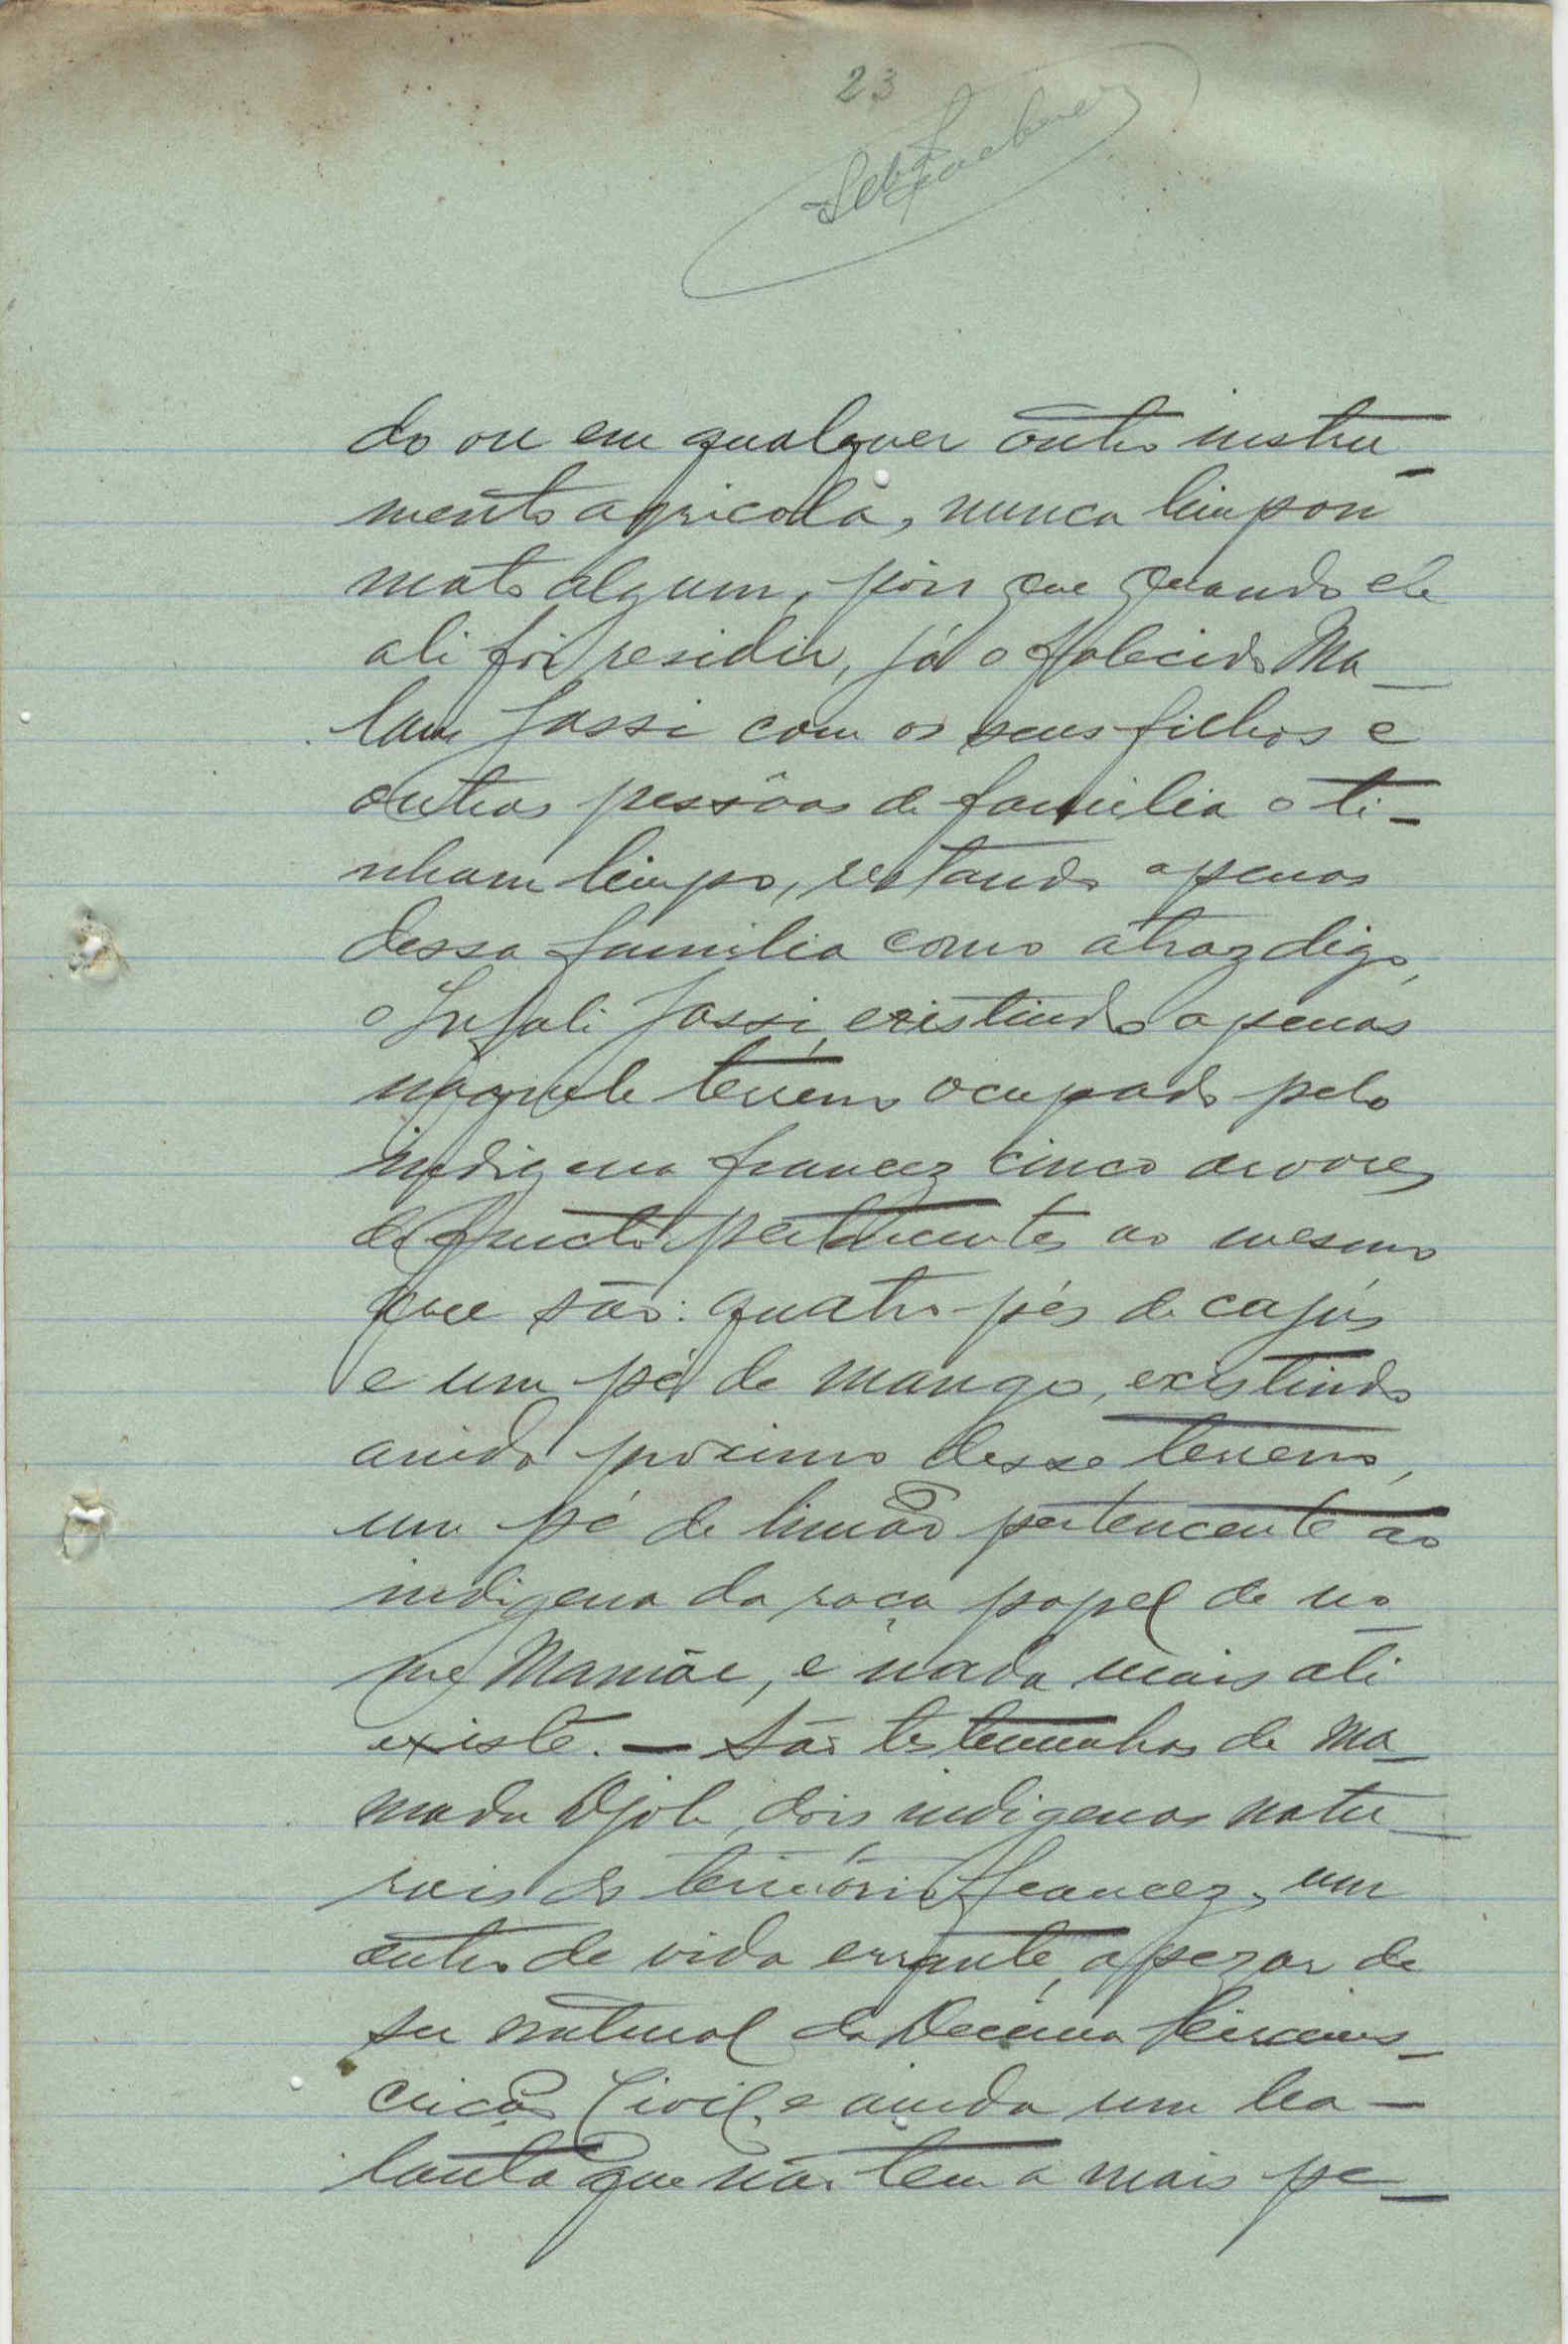 23
do ou em qualquer outro instru-
mento agricola, nunca limpou
mato algum, pois que quando ele
ali foi residir, já o falecido Ma-
lam Jassi com os seus filhos e
outras pessôas de familia o ti-
nham limpo, restando apenas
dessa familia como atraz digo,
o Infali Jassi, existindo apenas
naquele terreno ocupado pelo
indigena francez cinco arvores
de fructo pertencentes ao mesmo
que são: quatro pés de cajús
e um pé de mango, existindo
ainda proximo desse terreno,
um pé de limão pertencente ao
indigena da raça papel de no-
me Maniáe, e nada mais ali
existe. — São testemunhas de Ma-
madu Djob, dois indigenas natu-
rais do território francez, um
outro de vida errante, apezar de
ser natural da Decima Circuns-
crição Civil, e ainda um ba-
lanta que não tem a mais pe-